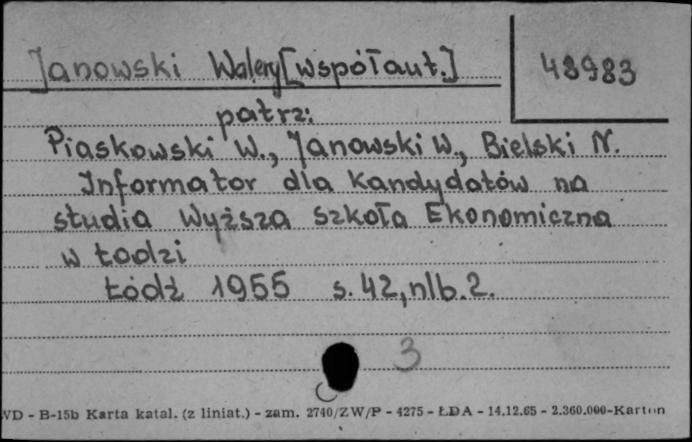 Janowski Walery [współaut.]
48983
patrz:
Piaskowski W., Janowski W., Bielski N.
Informator dla Kandydatów na
studia Wyższa Szkoła Ekonomiczna
w Łodzi
Łódź 1955 s. 42, nlb. 2.
3
WD - B-15b Karta katal. (z liniat.) - zam. 2740/ZW/P - 4275 - ŁDA - 14.12.65 - 2.360.000-Karton